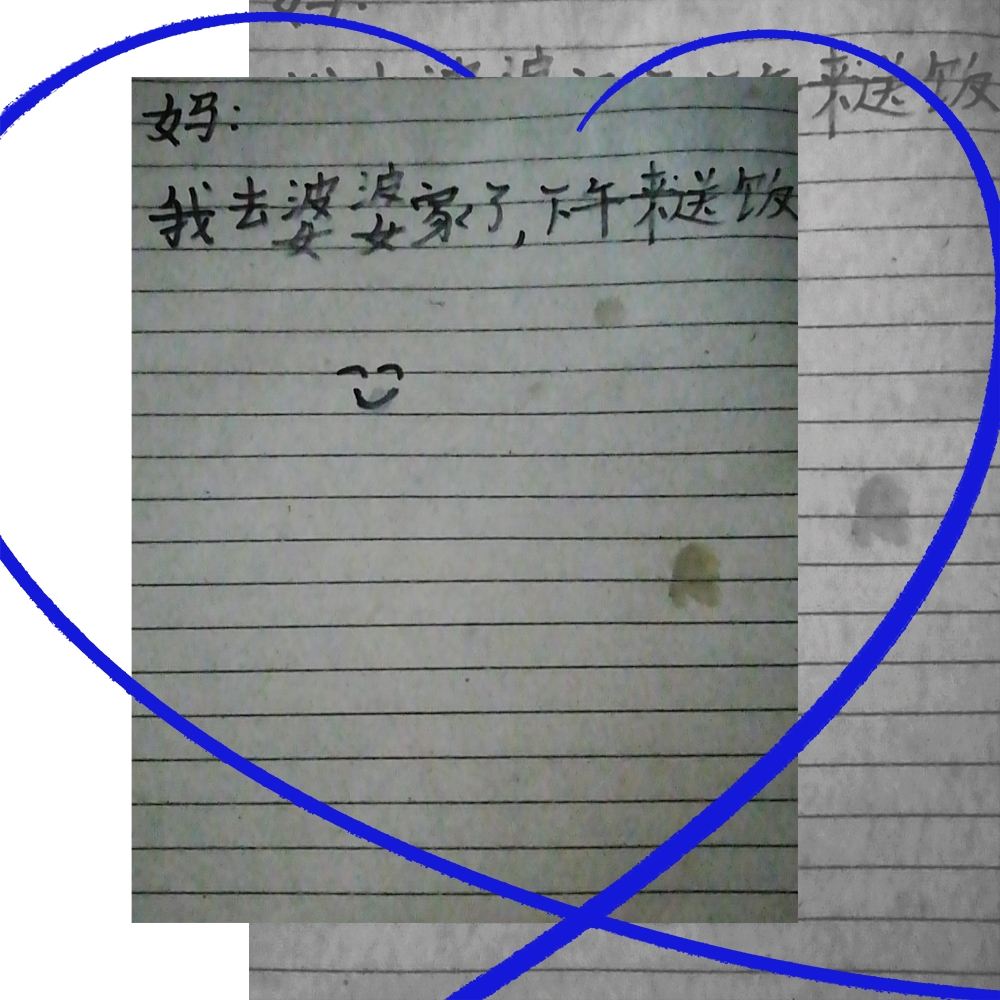 妈:
我去婆婆家了,下午来送饭
来送饭